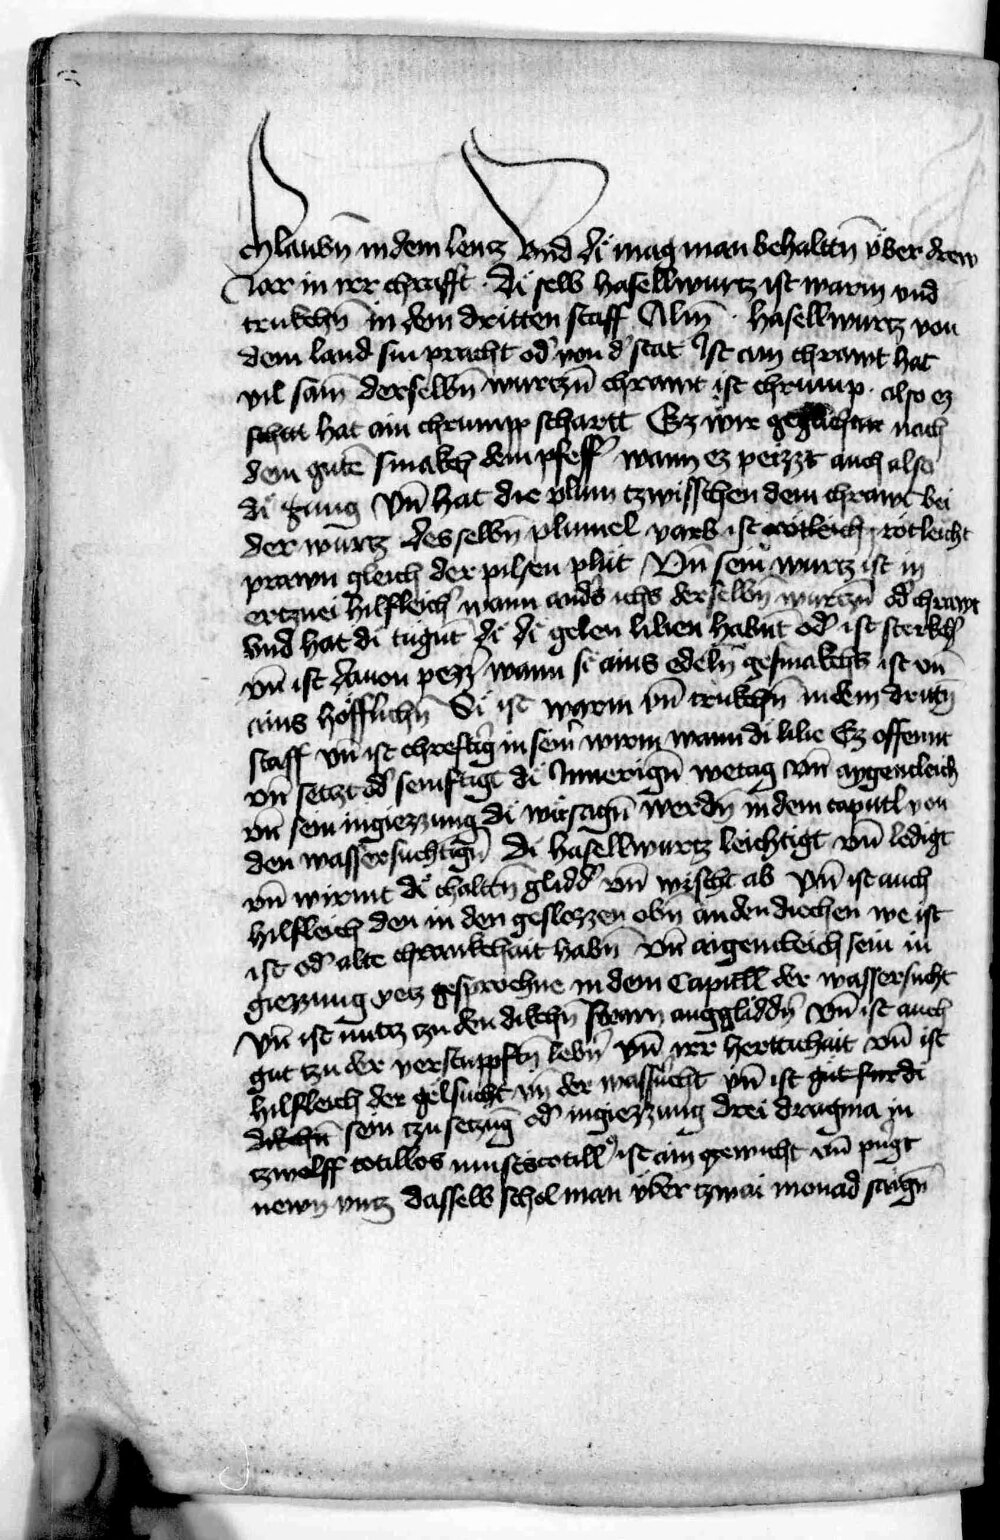 chlaubn̄ in dem lentz vnd di mag man behaltn̄ vber drew
Jar in irr chrafft · Di selb hasellwurtz ist warm vnd
trukchn̄ in dem dritten staff Alin̄ · hasellwurtz von
dem land sin pracht od̕ von d̕ stat Ist ain chrawt hat
vil sam̄ derselbn̄ wurtzn̄ chrawt ist chrump · also ez
hat ain chrumpp schartt Ez wir nach
dem gutē smakch dem pfeff̕ wann ez peizzt auch also
di zung Vn̄ hat die plum tzwisschen dem chrawt bei
der wurtz desselbn̄ plumel varb ist rotleich rotleicht
prawn gleich der pilsen plut Vn̄ sein wurtz ist in
ertznei hilfleich̕ wann anders ichs derselbn̄ wurtzn̄ od̕ chrawt
vnd hat di tugūt di di gelen lilien habnt od̕ ist sterkch̕
vn̄ ist dauon pezz̕ wann si ains edeln̄ gesmakchs ist vn̄
ains hofflichn̄ Si ist warm vn̄ trukchn̄ in dem drittn̄
staff vn̄ ist chreftig̕ in sein̕ wirm wann di lilie Ez offennt
vn̄ setzt od̕ semftigt di Innerign̄ wetag vn̄ aygentleich
vn̄ sein ingiezzung di wir sagn̄ werdn̄ in dem capitl von
den wassersuchtign̄ Di hasellwurtz leichtigt vn̄ ledigt
vn̄ wirmt di chaltn̄ glidd̕ vn̄ wischt ab Vn̄ ist auch
hilfleich den in den geslozzen obn̄ an den diechen we ist
ist od̕ alte chrankchait habn̄ vn̄ aigentleich sein in
giezzung yetz gesprochne in dem Capitll der wassersucht
vn̄ ist nutz tzu den dikchn̄ auggliddn̄ Vn̄ ist auch
gut tzu der verstuppftn̄ lebn̄ vn̄ irr herttichait vn̄ ist
hilfleich der gelsucht vn̄ der wassersucht vn̄ ist gut fur di
dikchn̄ sein tzusetzūg od̕ ingiezzung drei dragma in
tzwelff totillos ist ain gewicht vn̄ pugt
newn vntz dasselb schol man vber tzwai monad saign̄